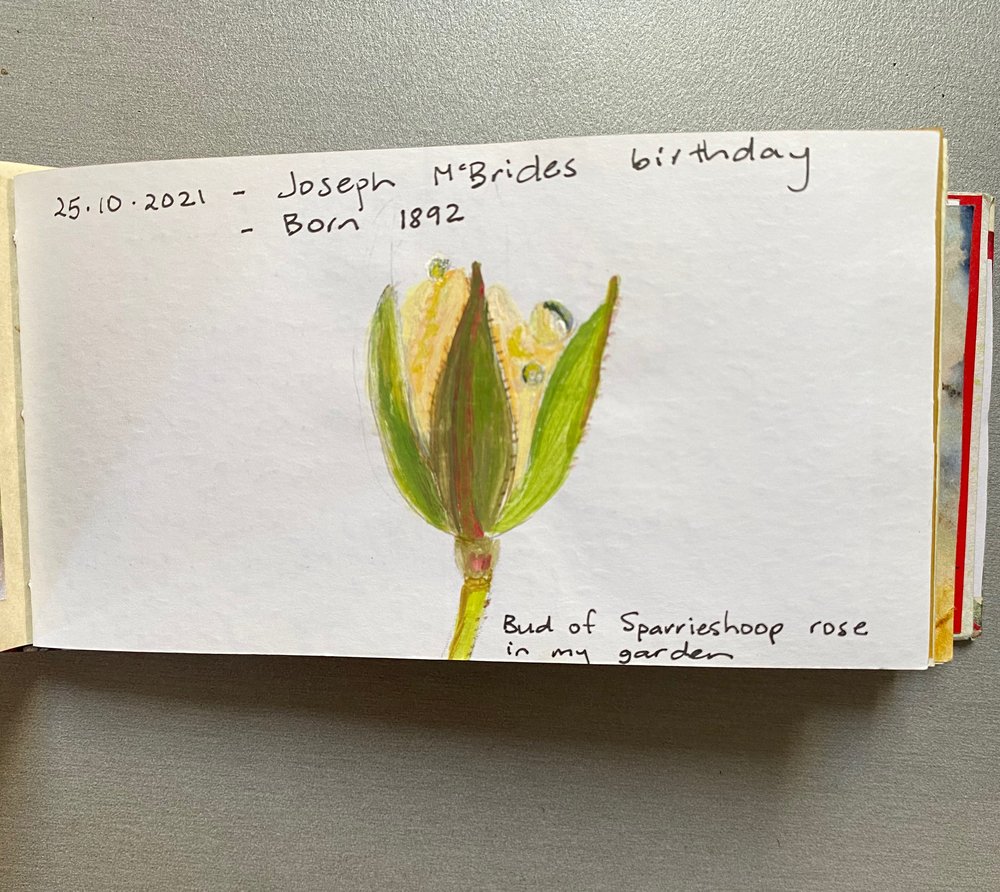 25.10.2021 - Joseph McBrides birthday
- Born 1892
Bud of Sparrieshoop rose
in my garden